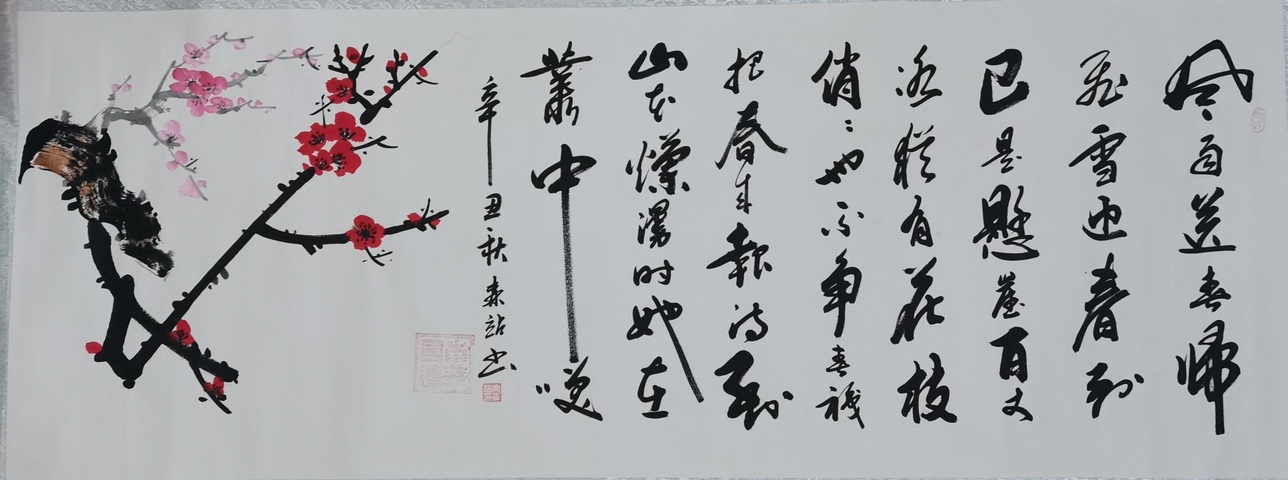 风雨送春帰
飛雪迎春到
已是懸崖百丈
冰犹有花枝
俏〻也不争春祇
把春来報待到
山花爛漫时她在
叢中咲
辛丑秋森站书